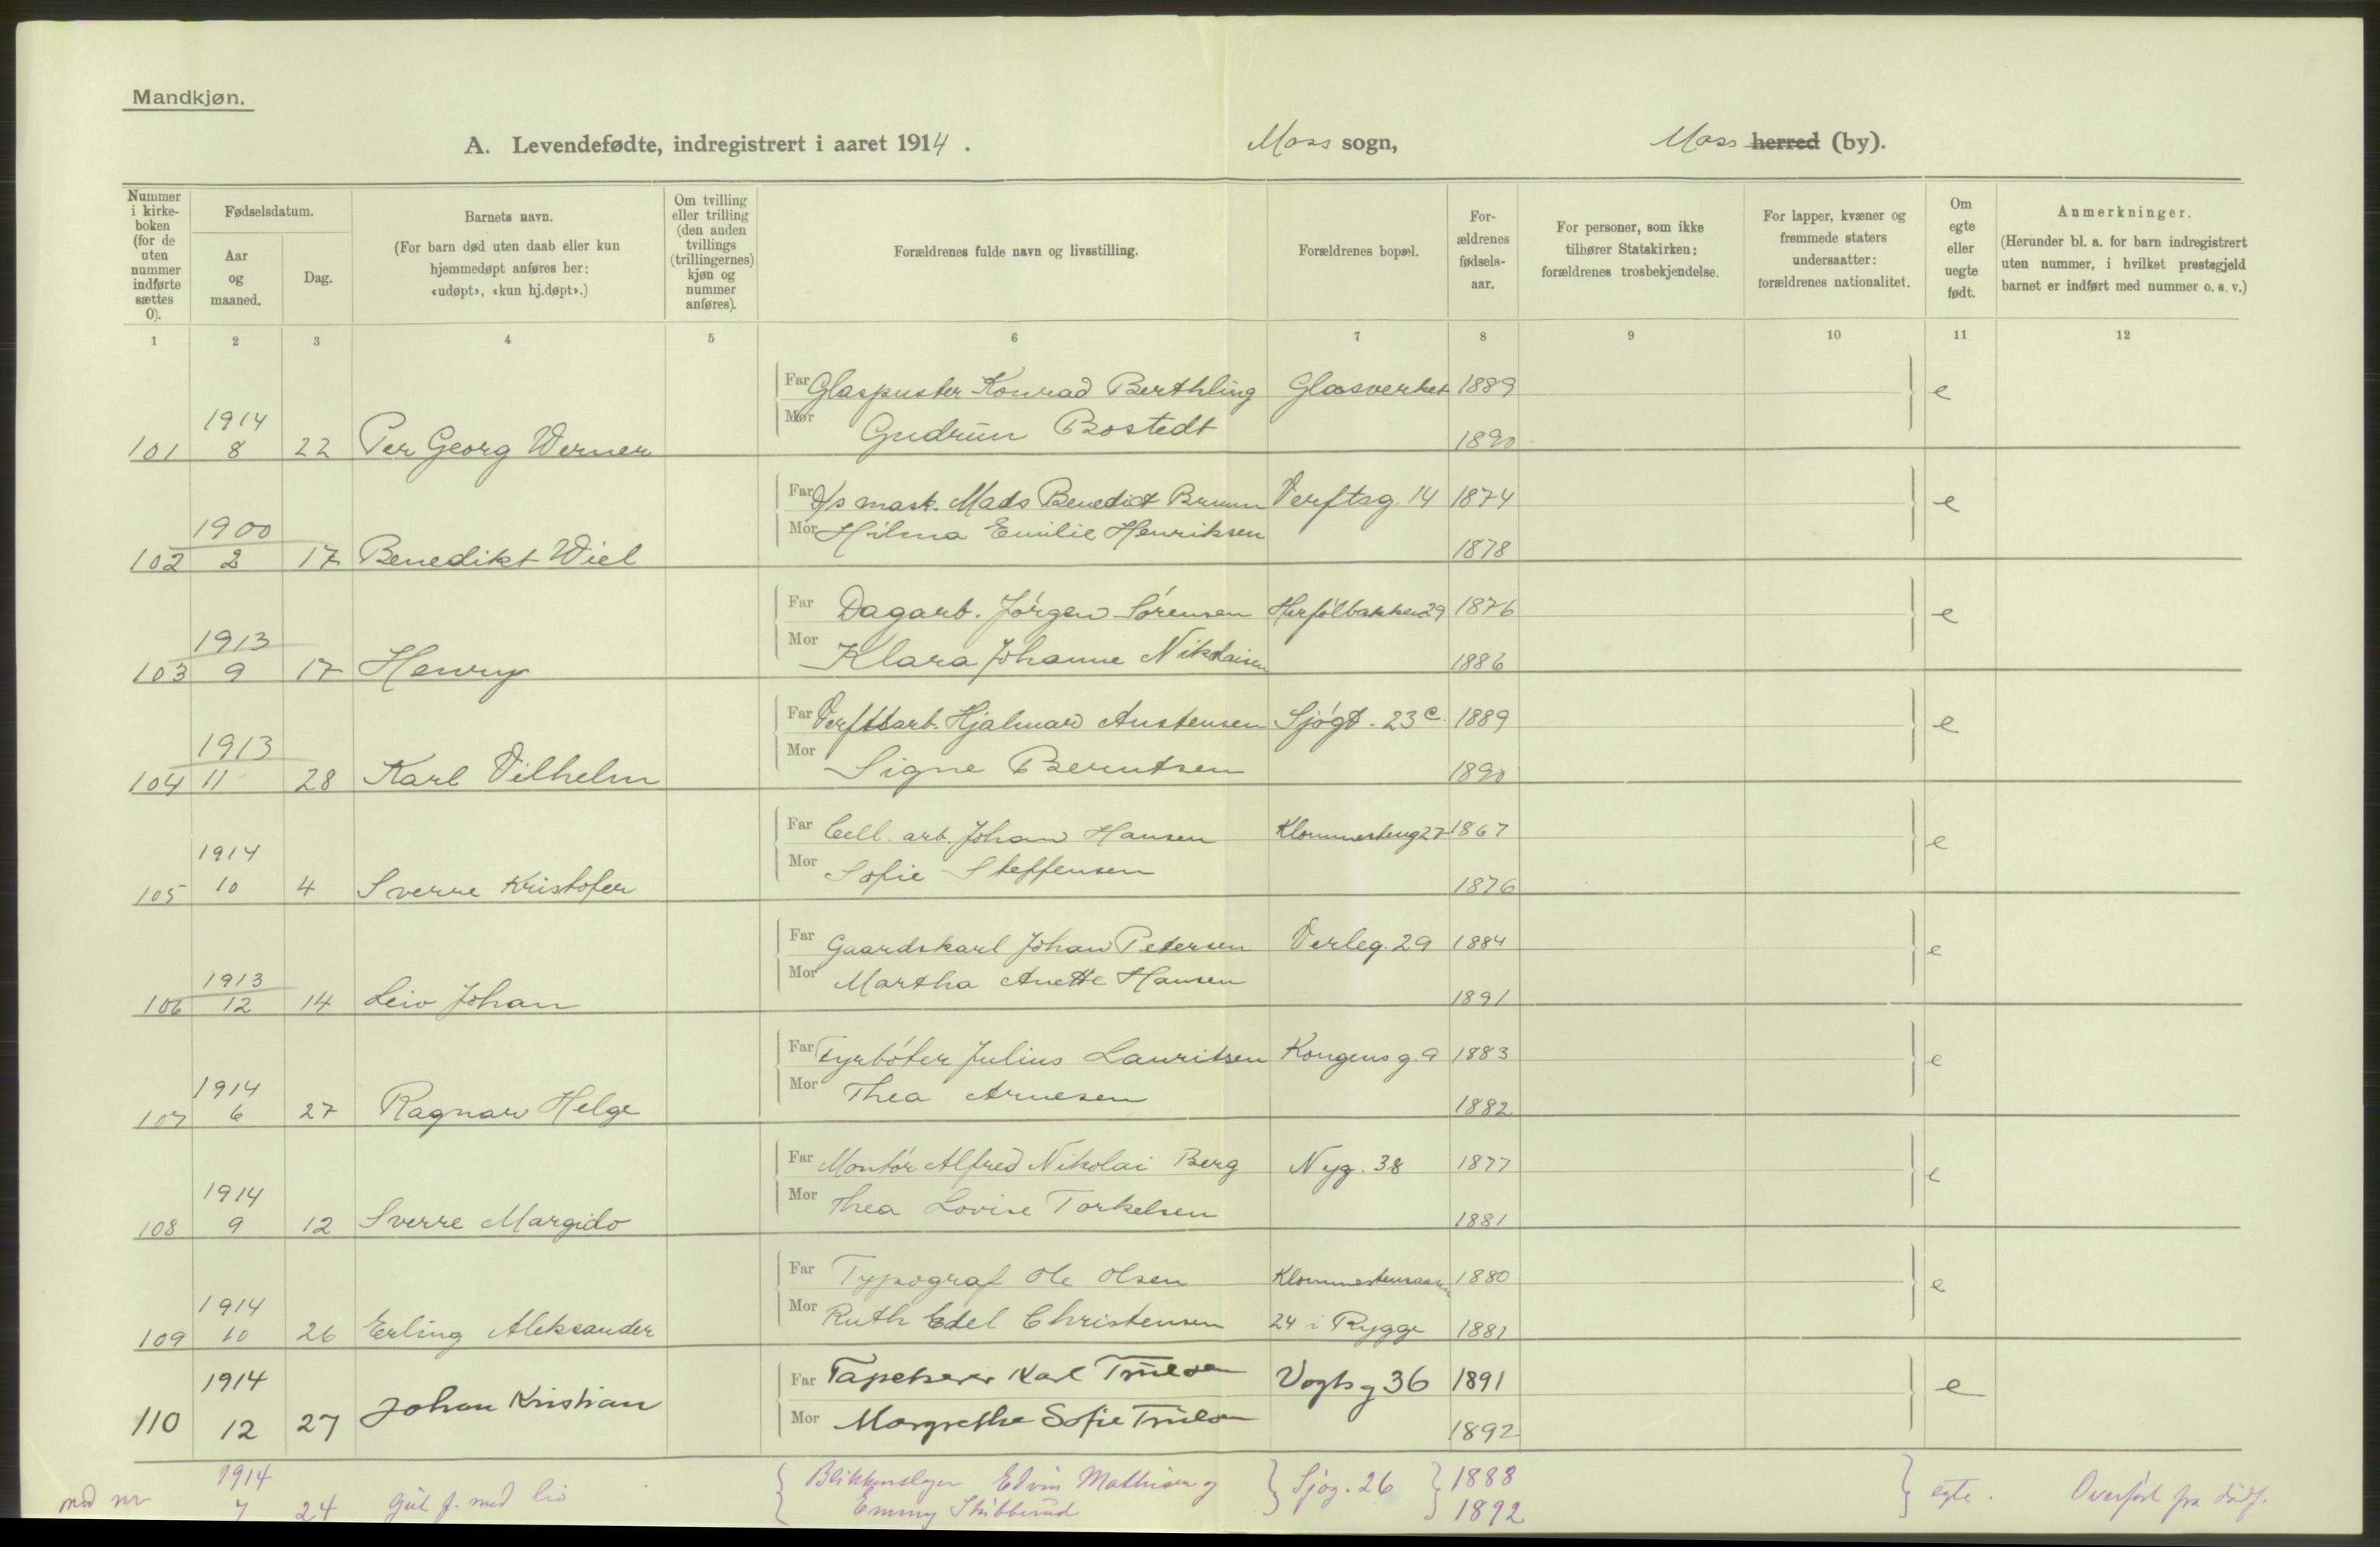 Mandkjøn.
A. Levendefødte, indregistrert i aaret 1914.
Moss sogn,
Moss herred (by).
Nummer i kirke-boken (for de uten nummer indførte sættes 0).
Fødselsdatum.
Aar og maaned.
Dag.
Barnets navn.
(For barn død uten daab eller kun hjemmedøpt anføres her: «udøpt», «kun hj.døpt».)
Om tvilling eller trilling (den anden tvillings (trillingernes) kjøn og nummer anføres).
Forældrenes fulde navn og livsstilling.
Forældrenes bopæl.
For-ældrenes fødsels-aar.
For personer, som ikke tilhører Statskirken: forældrenes trosbekjendelse.
For lapper, kvæner og fremmede staters undersaatter: forældrenes nationalitet.
Om egte eller uegte født.
Anmerkninger.
(Herunder bl. a. for barn indregistrert uten nummer, i hvilket prestegjeld barnet er indført med nummer o. s. v.)
1 2 3 4 5 6 7 8 9 10 11 12
Far Glaspuster Konrad Berthling Glasverket 1889 e
1914 Mor Gudrun Bostedt 1890
101 8 22 Per Georg Werner
Far D/s mask. Mads Benedict Bruun Verftsg. 14 1874 e
1900 Mor Hilma Emilie Henriksen 1878
102 2 17 Benedikt Wiel
Far Dagarb. Jørgen Sørensen Herfølbakken 29 1876 e
1913 Mor Klara Johanne Nikolaisen 1886
103 9 17 Henry
Far Verftsarb. Hjalmar Austensen Sjøgt. 23 c. 1889 e
1913 Mor Signe Berntsen 1890
104 11 28 Karl Vilhelm
Far Cell. arb. Johan Hansen 27 1867 e
1914 Mor Sofie Steffensen 1876
105 10 4 Sverre Kristofer
Far Gaardskarl Johan Petersen Verleg. 29 1884 e
1913 Mor Martha Anette Hansen 1891
106 12 14 Leiv Johan
Far Fyrbøter Julius Lauritsen Kongens g. 9 1883 e
1914 Mor Thea Arnesen 1882
107 6 27 Ragnar Helge
Far Montør Alfred Nikolai Berg Nyg. 38 1877 e
1914 Mor Thea Lovise Torkelsen 1881
108 9 12 Sverre Margido
Far Typograf Ole Olsen 1880 e
1914 Mor Ruth Edel Christensen 24 i Rygge 1881
109 10 26 Erling Aleksander
1914 Far Tapetserer Karl Truelsen Vogtsg 36 1891 e
110 12 27 Johan Kristian Mor Margrethe Sofie Truelsen 1892
1914 Blikkenslager Edvin Mathisen og Sjøg. 26 1888 egte. Overført fra dødf.
7 24 Gut f. med liv Emmy Skibberud 1892